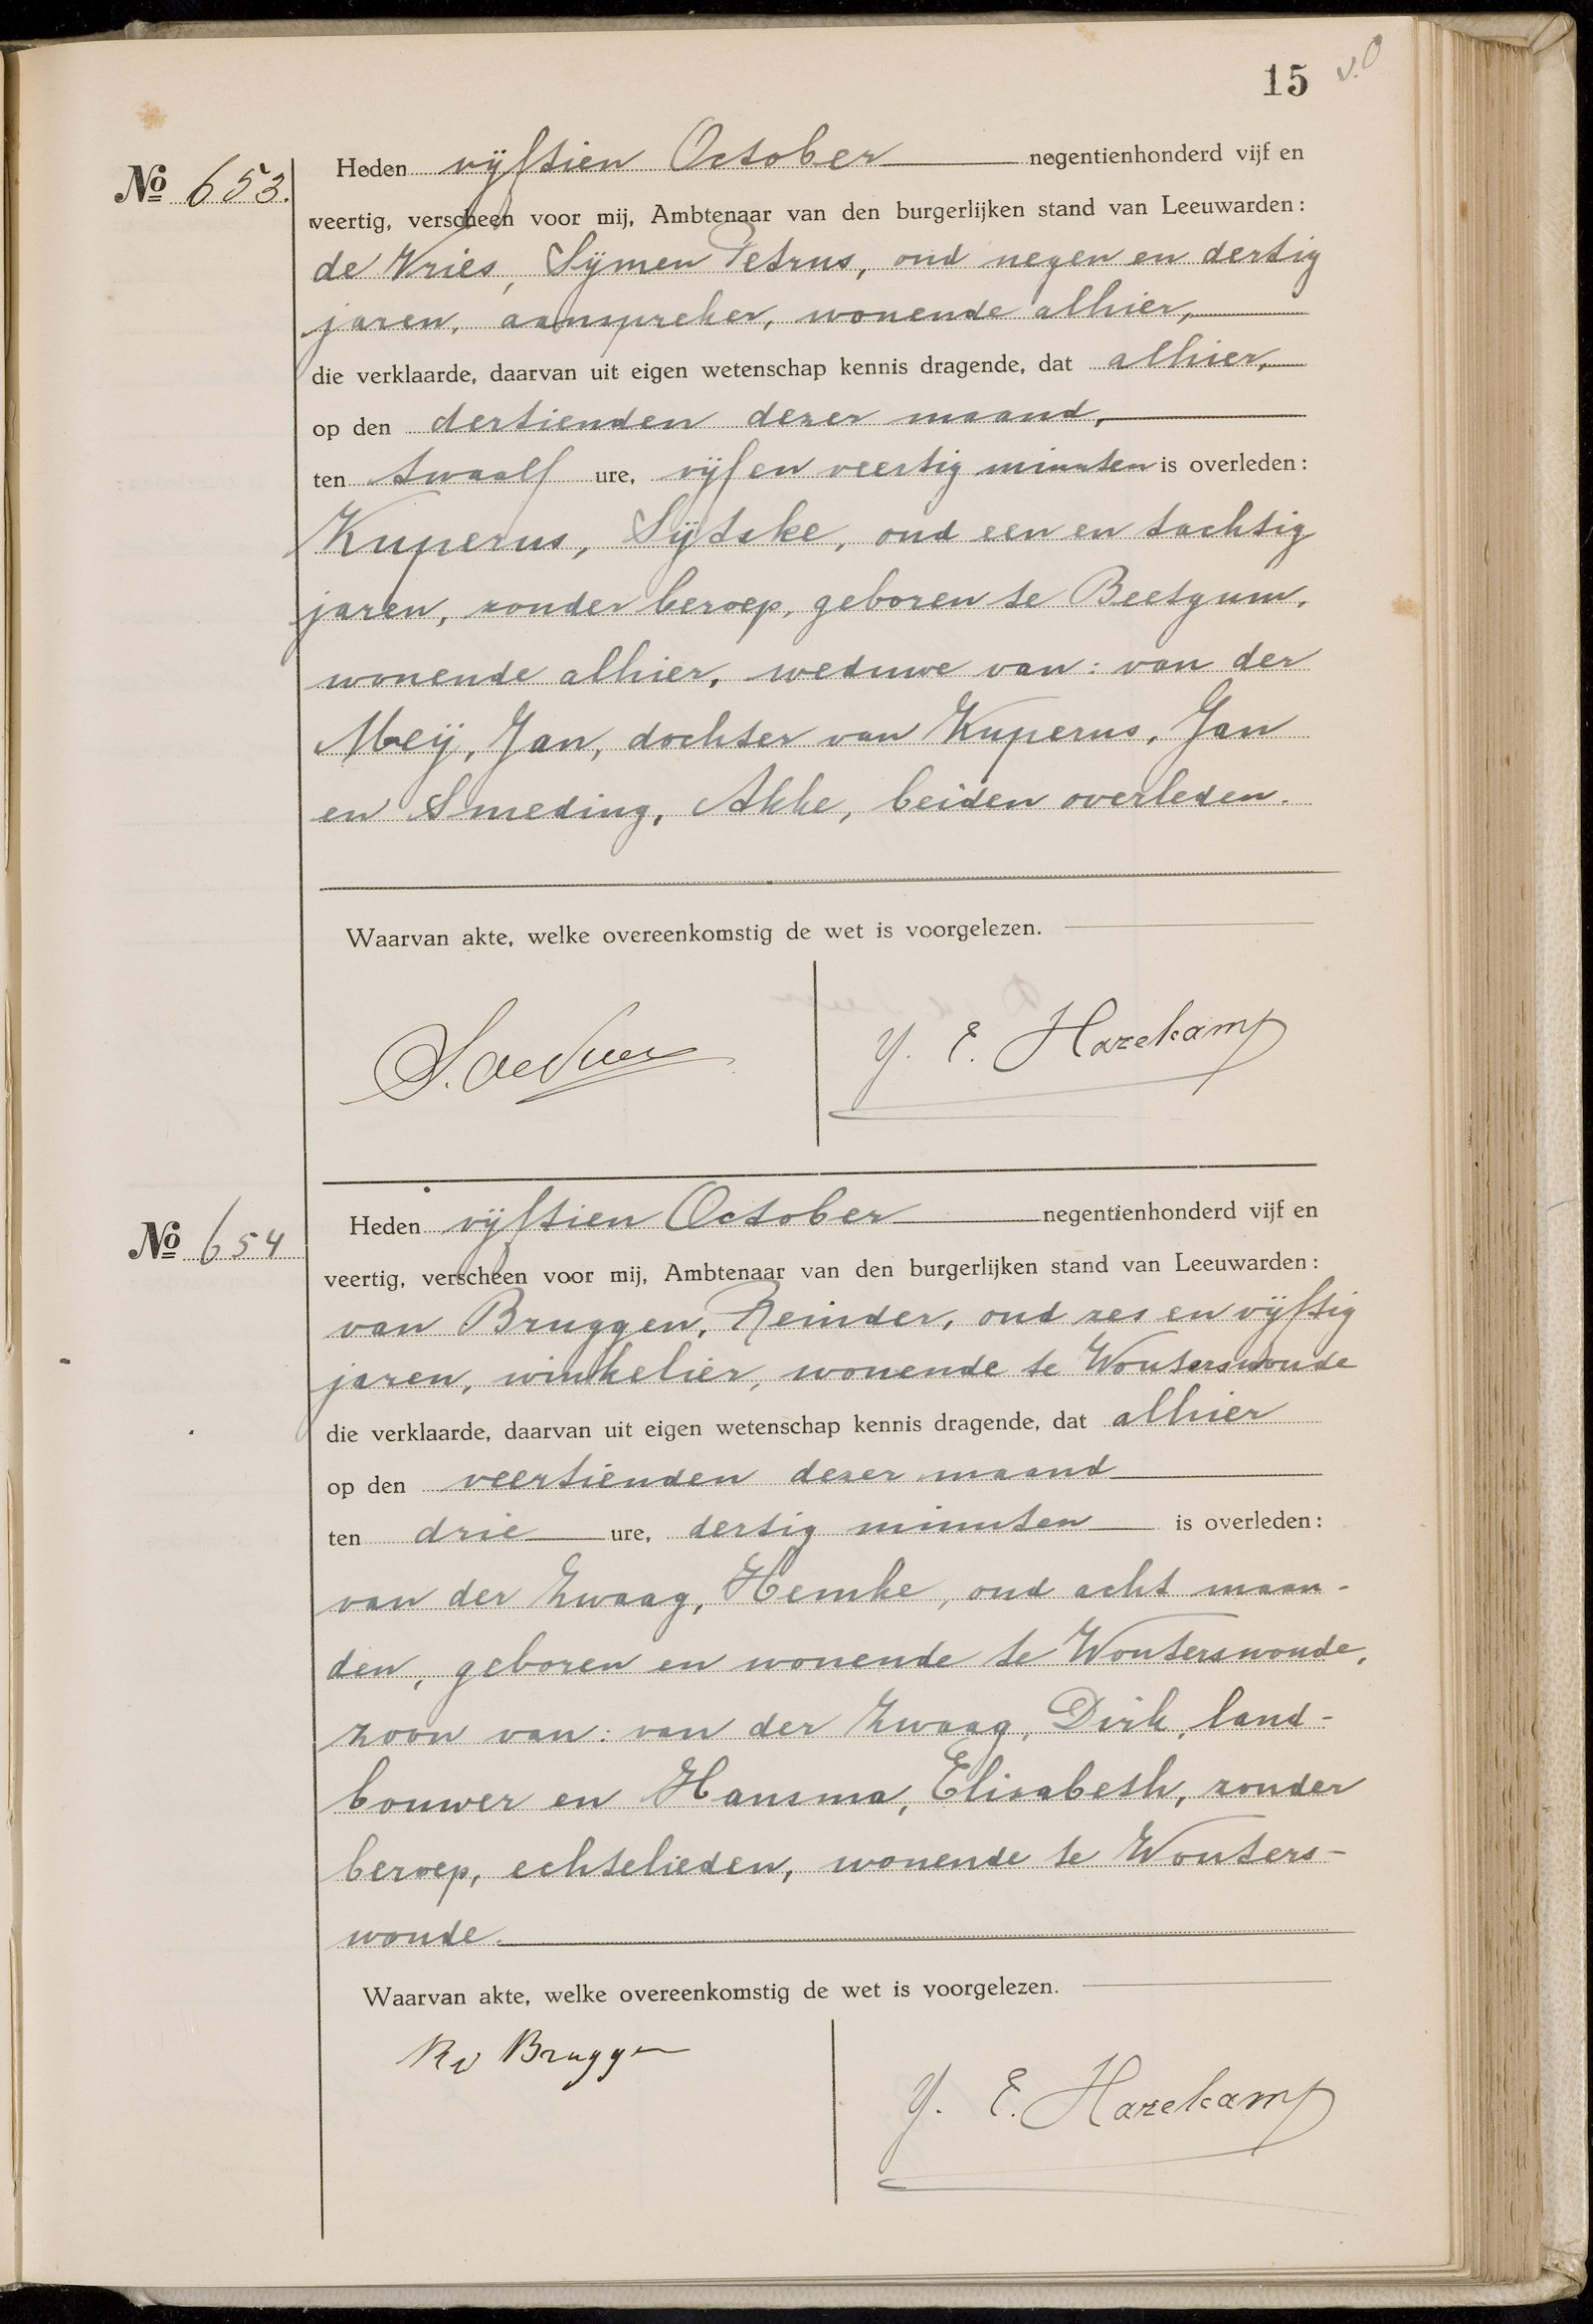 15 v.O
No 653.
Heden vijftien October negentienhonderd vijf en
veertig, verscheen voor mij, Ambtenaar van den burgerlijken stand van Leeuwarden:
de Vries, Sijmen Petrus, oud negen en dertig
jaren, aanspreker, wonende alhier,
die verklaarde, daarvan uit eigen wetenschap kennis dragende, dat alhier,
op den dertienden dezer maand,
ten twaalf ure, vijf en veertig minuten is overleden:
Kuperus, Sijtske, oud een en tachtig
jaren, zonder beroep, geboren te Beetgum,
wonende alhier, weduwe van: van der
Meij, Jan, dochter van Kuperus, Jan
en Smeding, Akke, beiden overleden.
Waarvan akte, welke overeenkomstig de wet is voorgelezen.
S. de Vries Y. E. Hazekamp
No 654
Heden vijftien October negentienhonderd vijf en
veertig, verscheen voor mij, Ambtenaar van den burgerlijken stand van Leeuwarden:
van Bruggen, Reinder, oud zes en vijftig
jaren, winkelier, wonende te Wouterswoude
die verklaarde, daarvan uit eigen wetenschap kennis dragende, dat alhier
op den veertienden dezer maand
ten drie ure, dertig minuten is overleden:
van der Zwaag, Hemke, oud acht maan-
den, geboren en wonende te Wouterswoude,
zoon van: van der Zwaag, Dirk, land-
bouwer en Hansma, Elisabeth, zonder
beroep, echtelieden, wonende te Wouters-
woude.
Waarvan akte, welke overeenkomstig de wet is voorgelezen.
R v Bruggen
Y. E. Hazekamp